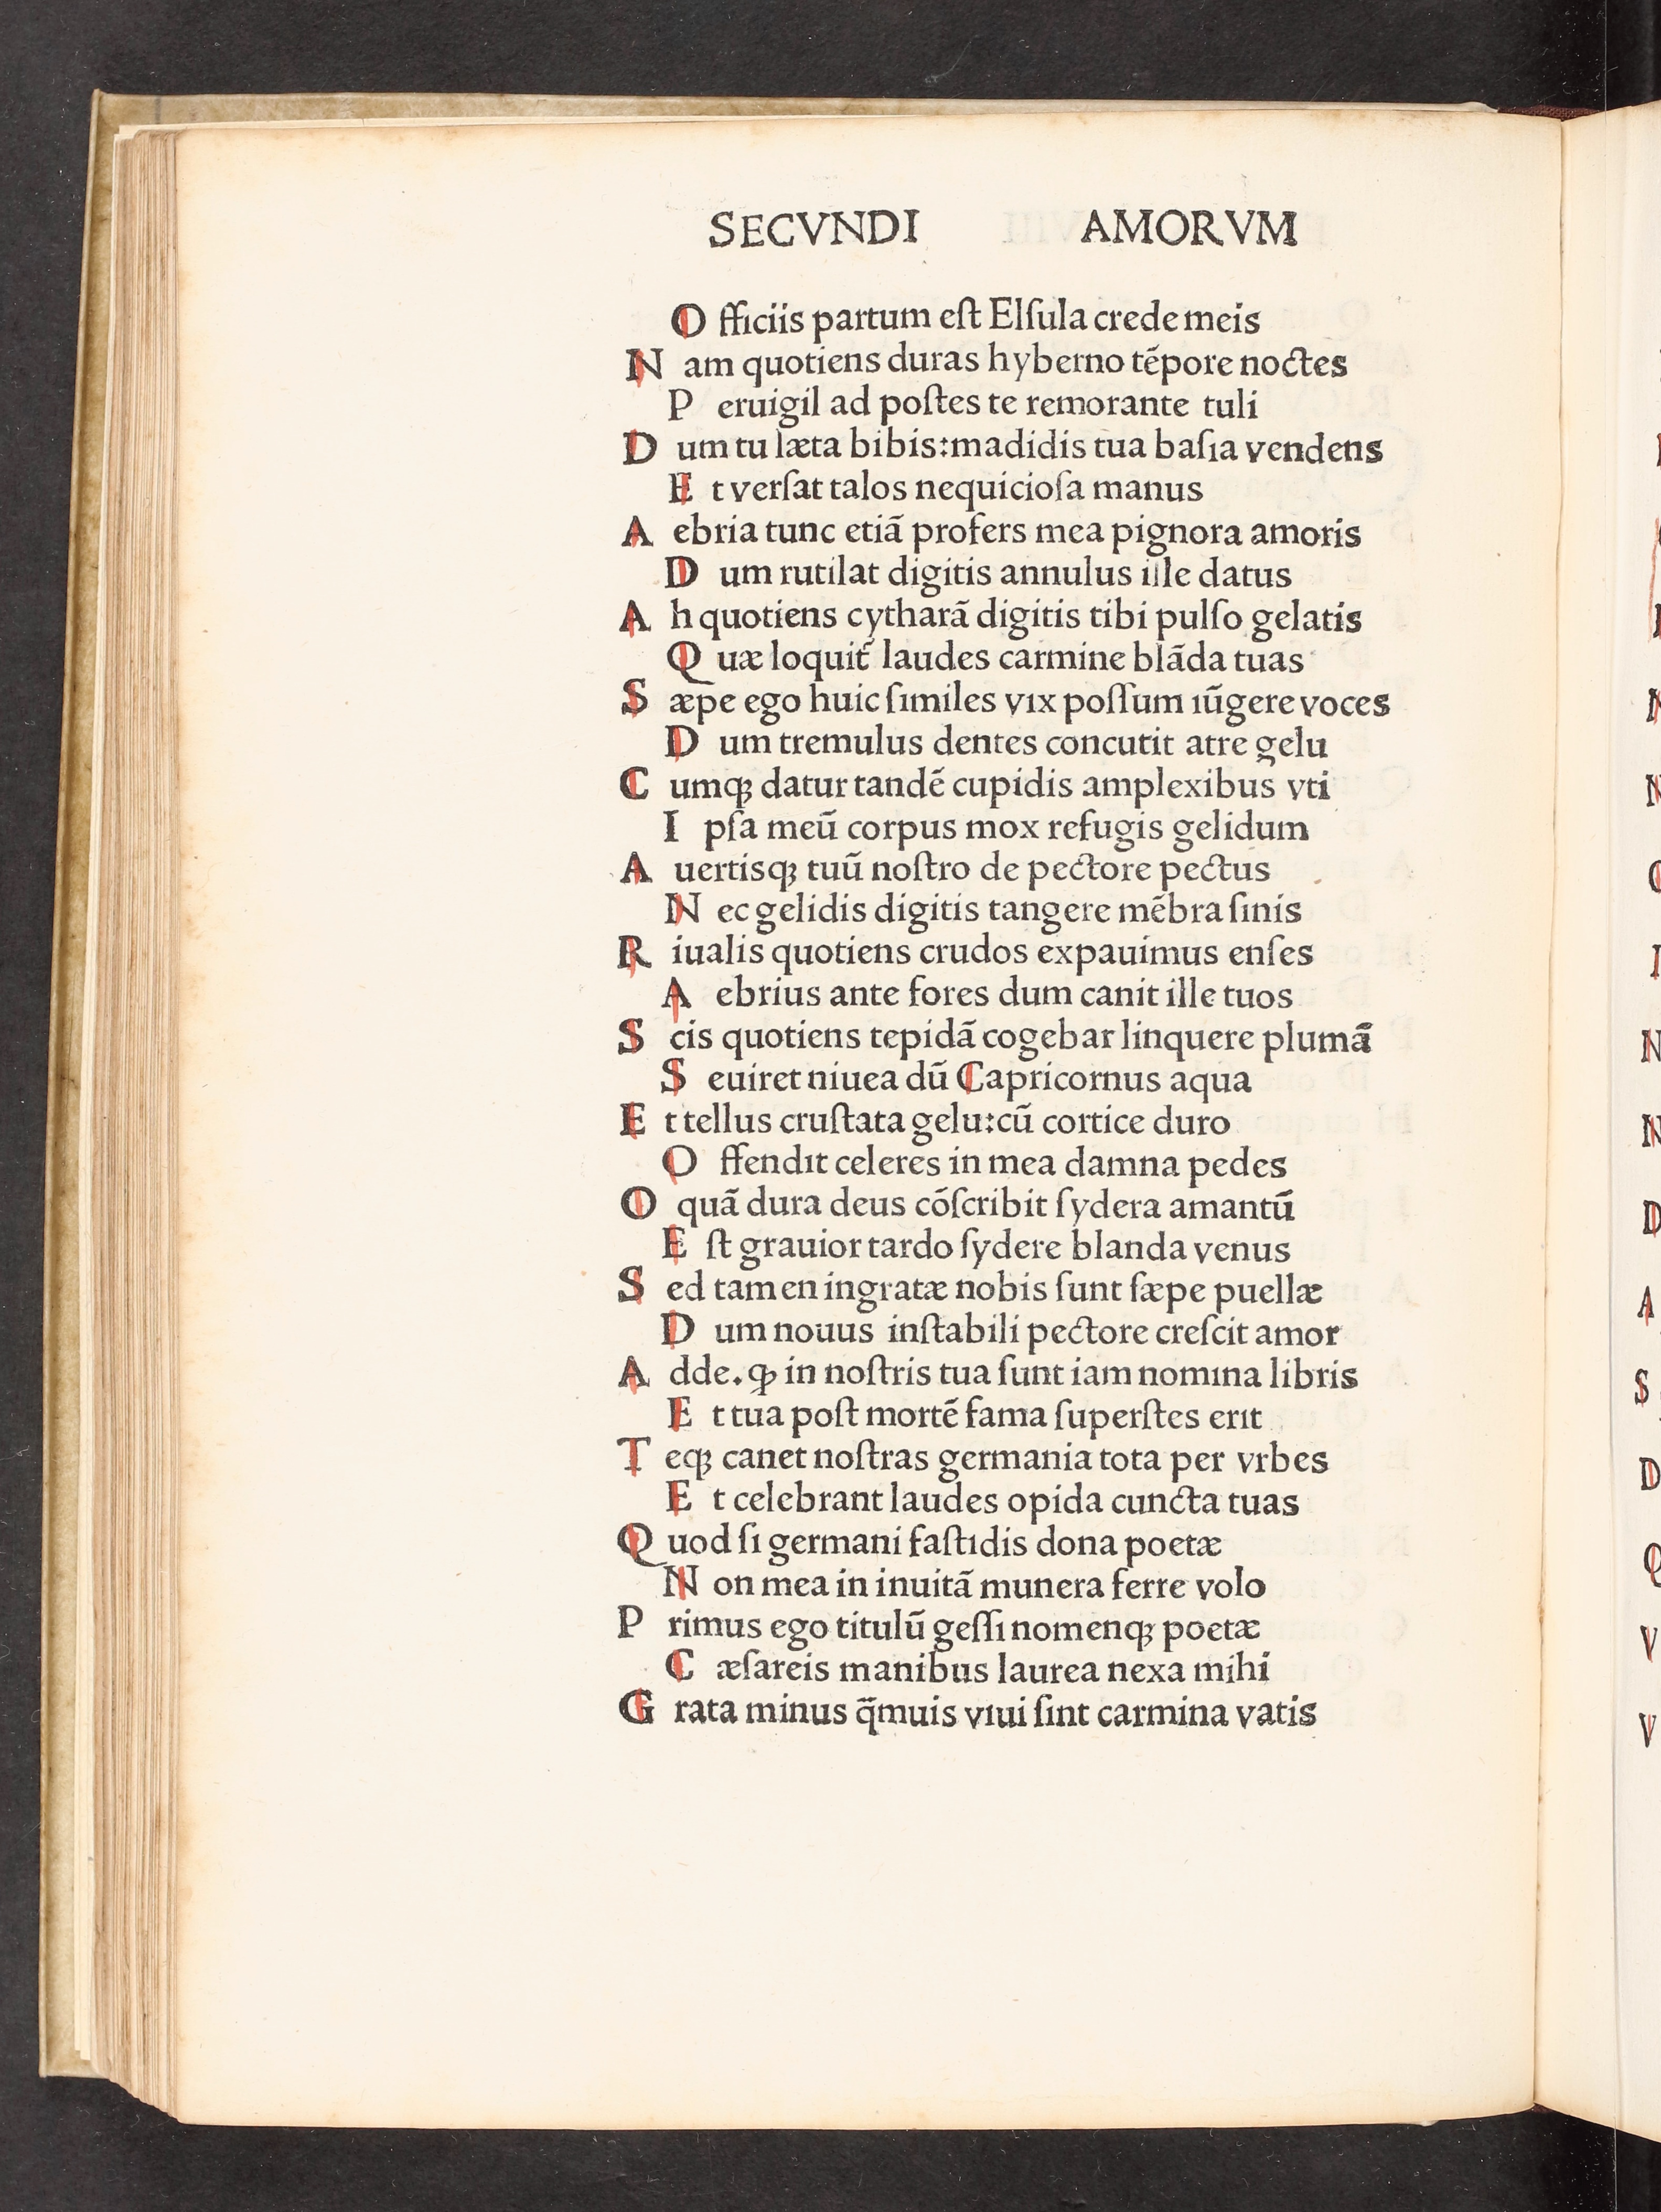 SECVNDI AMORVM
O fficiis partum eſt Elſula crede meis
N am quotiens duras hyberno tẽpore noctes
P eruigil ad poſtes te remorante tuli
D um tu læta bibis:madidis tua baſia vendens
E t verſat talos nequicioſa manus
A ebria tunc etiã profers mea pignora amoris
D um rutilat digitis annulus ille datus
A h quotiens cytharã digitis tibi pulſo gelatis
Q uæ loquit᷑ laudes carmine blãda tuas
S æpe ego huic ſimiles vix poſſum iũgere voces
D um tremulus dentes concutit atre gelu
C umqꝫ datur tandẽ cupidis amplexibus vti
I pſa meũ corpus mox refugis gelidum
A uertisqꝫ tuũ noſtro de pectore pectus
N ec gelidis digitis tangere mẽbra ſinis
R iualis quotiens crudos expauimus enſes
A ebrius ante fores dum canit ille tuos
S cis quotiens tepidã cogebar linquere plumã
S euiret niuea dũ Capricornus aqua
E t tellus cruſtata gelu:cũ cortice duro
O ffendit celeres in mea damna pedes
O quã dura deus cõſcribit ſydera amantũ
E ſt grauior tardo ſydere blanda venus
S ed tamen ingratæ nobis ſunt ſæpe puellæ
D um nouus inſtabili pectore creſcit amor
A dde. ꝙ in noſtris tua ſunt iam nomina libris
E t tua poſt mortẽ fama ſuperſtes erit
T eqꝫ canet noſtras germania tota per vrbes
E t celebrant laudes opida cuncta tuas
Q uod ſi germani faſtidis dona poetæ
N on mea in inuitã munera ferre volo
P rimus ego titulũ geſſi nomenqꝫ poetæ
C æſareis manibus laurea nexa mihi
G rata minus q̃muis viui ſint carmina vatis